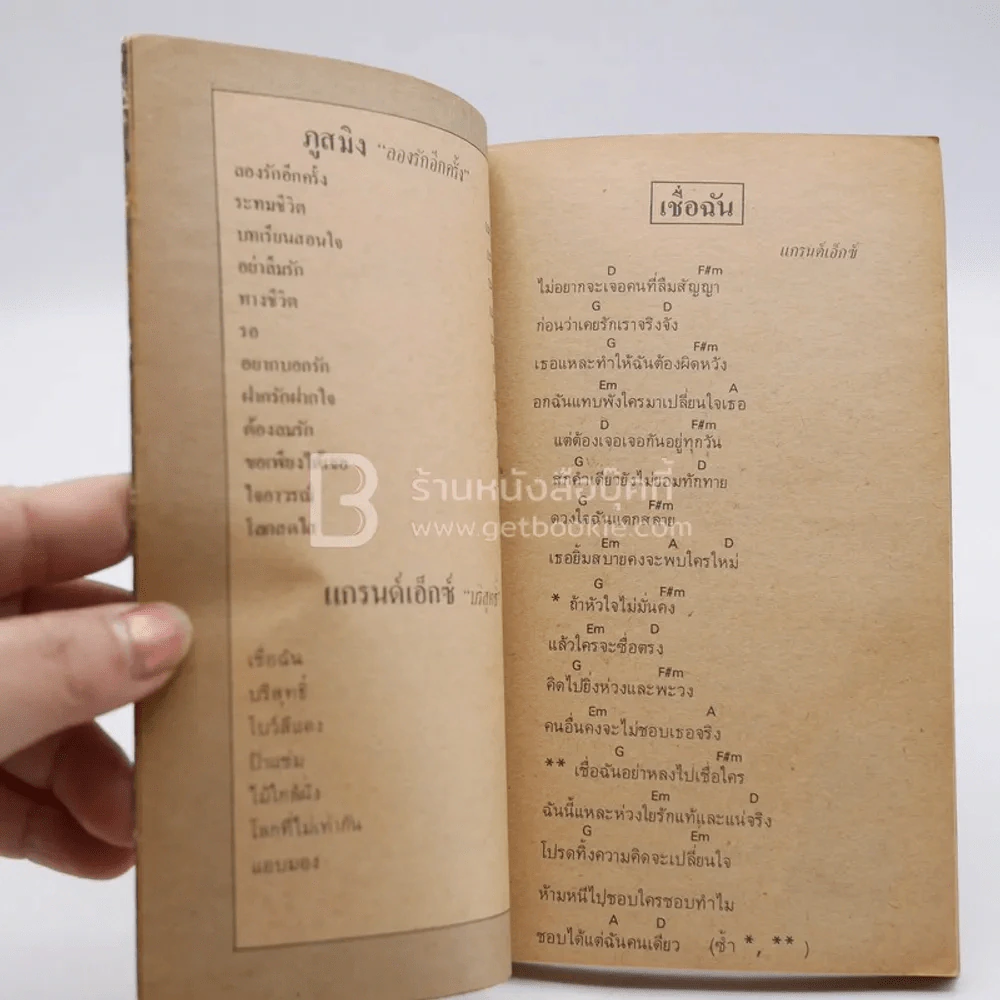 ภูสมิง "ลองรักอีกครั้ง"
ลองรักอีกครั้ง
ระทมชีวิต
บทเรียนสอนใจ
อย่าลืมรัก
ทางชีวิต
รอ
อยากบอกรัก
ฝากรักฝากใจ
ต้องลมรัก
ขอเพียงได้เจอ
ใจอาวรณ์
โลกสดใส
แกรนด์เอ็กซ์ "บริสุทธิ์
เชื่อฉัน
บริสุทธิ์
โบว์สีแดง
ป้าแช่ม
ไม้ใกล้ฝั่ง
โลกที่ไม่เท่ากัน
แอบมอง
เชื่อฉัน
แกรนด์เอ็กซ์
D F#m
ไม่อยากจะเจอคนที่ลืมสัญญา
G D
ก่อนว่าเคยรักเราจริงจัง
G F#m
เธอแหละทำให้ฉันต้องผิดหวัง
Em A
อกฉันแทบพังใครมาเปลี่ยนใจเธอ
D F#m
แต่ต้องเจอเจอกันอยู่ทุกวัน
G D
สักคำเดียวยังไม่ยอมทักทาย
G F#m
ดวงใจฉันแตกสลาย
Em A D
เธอยิ้มสบายคงจะพบใครใหม่
G F#m
* ถ้าหัวใจไม่มั่นคง
Em D
แล้วใครจะซื่อตรง
G F#m
คิดไปยิ่งห่วงและพะวง
Em A
คนอื่นคงจะไม่ชอบเธอจริง
G F#m
** เชื่อฉันอย่าหลงไปเชื่อใคร
Em D
ฉันนี้แหละห่วงใยรักแท้และแน่จริง
G Em
โปรดทิ้งความคิดจะเปลี่ยนใจ
ห้ามหนีไปชอบใครชอบทำไม
A D
ชอบได้แต่ฉันคนเดียว (ซ้ำ *, **)
ร้านหนังสือบุ๊คกี้
www.getbookie.com